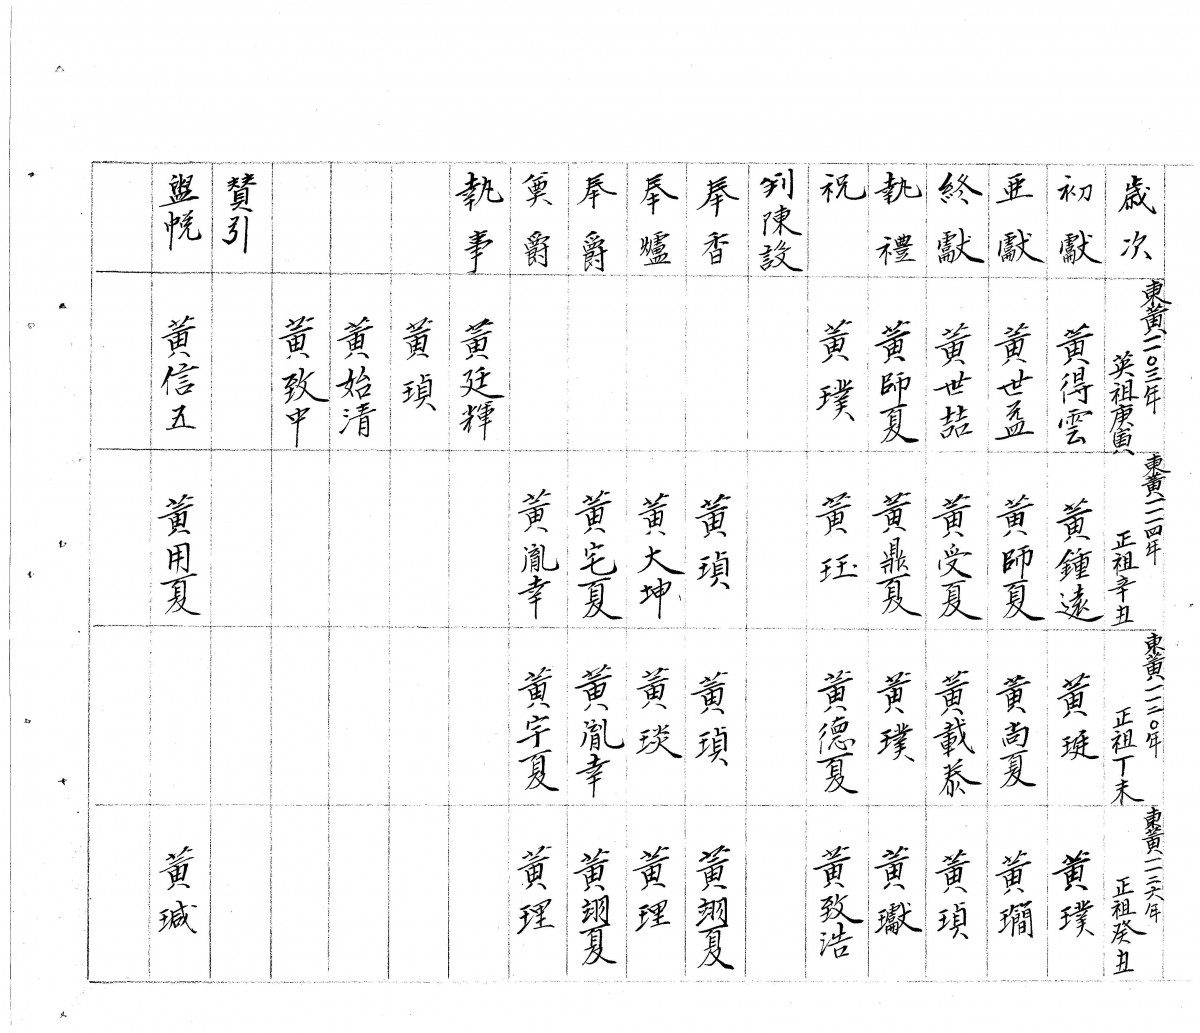 歲次
初獻
亜獻
終獻
執禮
祝
判陳設
奉香
奉爐
奉爵
奠爵
執事
贊引
盥帨
東黃一一〇三年
英祖庚寅
黃得雲
黃世益
黃世喆
黃師夏
黃璞
黃廷輝
黃瑱
黃始清
黃致中
黃信五
東黃一一一四年
正祖辛丑
黃鍾遠
黃師夏
黃受夏
黃鼎夏
黃玨
黃瑱
黃大坤
黃宅夏
黃胤幸
黃用夏
東黃一一二〇年
正祖丁未
黃珽
黃尚夏
黃載泰
黃璞
黃德夏
黃瑱
黃琰
黃胤幸
黃宇夏
東黃一一二六年
正祖癸丑
黃璞
黃瓓
黃瑱
黃瓛
黃致浩
黃翊夏
黃理
黃翊夏
黃理
黃瑊